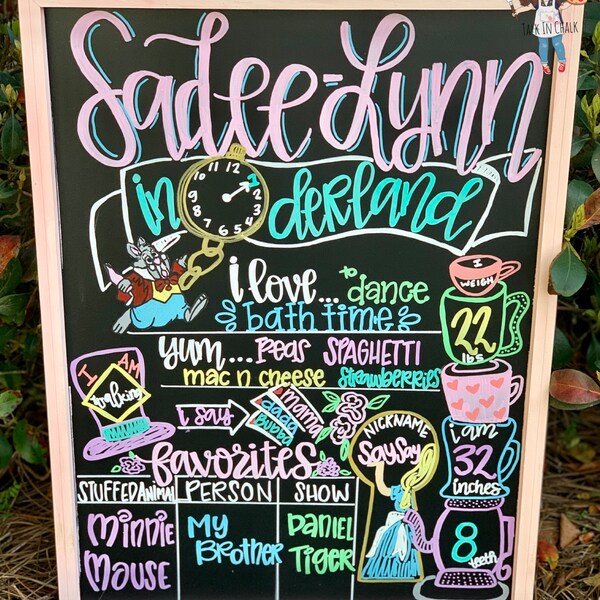 TALK IN CHALK
Sadee-Lynn
in derland
12 1 2 3 4 5 6 7 8 9 10 11
i love... to dance
bath time
yum... Peas SPAGHETTI
mac n cheese Strawberries
I AM
walking
i say
mama
dada
Bubba
NICKNAME
SaySay
favorites
STUFFED ANIMAL PERSON SHOW
Minnie Mouse
My Brother
DANIEL TIGER
I WEIGH
22
lbs
i am
32
inches
8
teeth